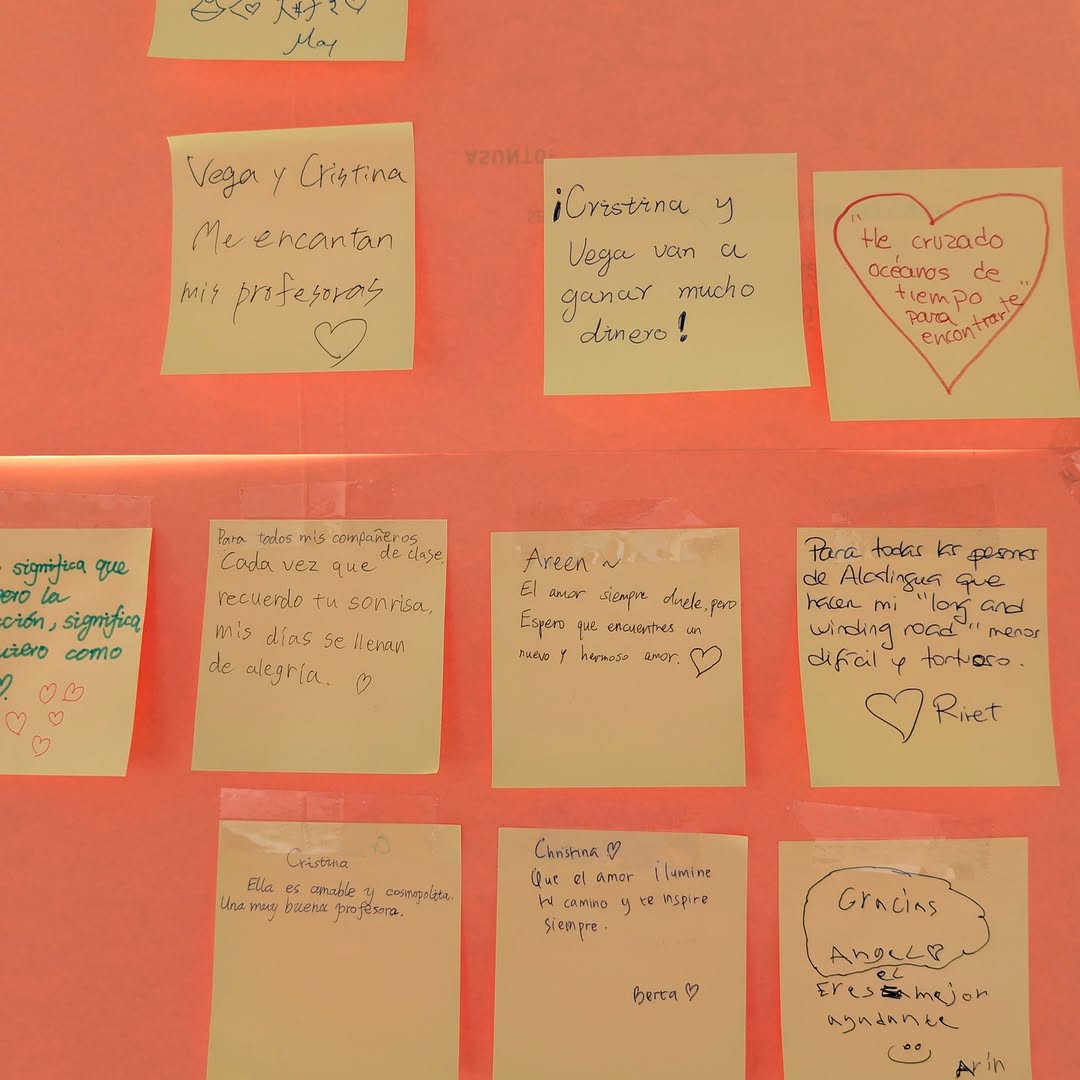 May
Vega y Cristina
Me encantan
mis profesoras
¡Cristina y
Vega van a
ganar mucho
dinero!
"He cruzado
océanos de
tiempo
para
encontrarte"
ASUNTO:
significa que
la
significa
como
Para todos mis compañeros
de clase,
Cada vez que
recuerdo tu sonrisa,
mis días se llenan
de alegría.
Areen ~
El amor siempre duele, pero
Espero que encuentres un
nuevo y hermoso amor.
Para todas las personas
de Alcalingua que
hacen mi "long and
winding road" menos
difícil y tortuoso.
Riret
Cristina
Ella es amable y cosmopolita.
Una muy buena profesora.
Christina
Que el amor ilumine
tu camino y te inspire
siempre.
Berta
Gracias
Angel
el
Eres mejor
ayudante
Arin